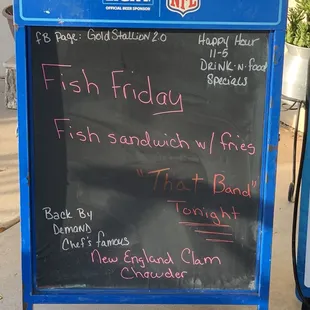 OFFICIAL BEER SPONSOR
NFL
FB Page: Gold Stallion 2.0
Happy Hour
11-5
DRINK-N-food
Specials
Fish Friday
Fish sandwich w/ fries
"That Band"
Tonight
Back By
DEMAND
Chef's famous
New England Clam
Chowder